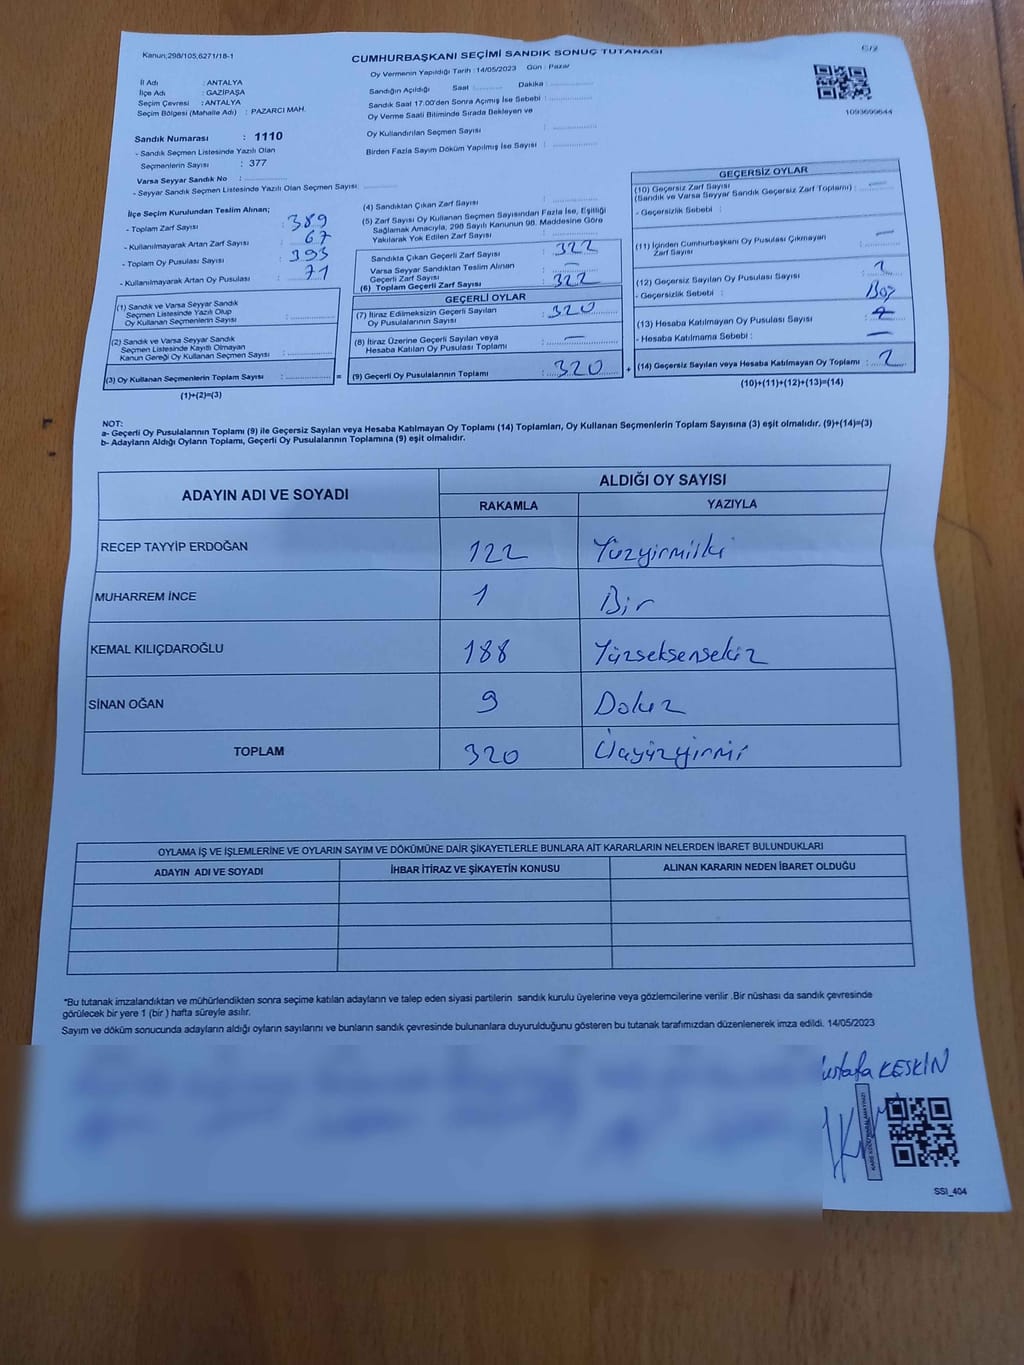 Kanun;298/105,6271/18-1
CUMHURBAŞKANI SEÇİMİ SANDIK SONUÇ TUTANAĞI
Oy Vermenin Yapıldığı Tarih : 14/05/2023 Gün : Pazar
İl Adı : ANTALYA
İlçe Adı : GAZİPAŞA
Seçim Çevresi : ANTALYA
Seçim Bölgesi (Mahalle Adı) : PAZARCI MAH.
Sandık Numarası : 1110
- Sandık Seçmen Listesinde Yazılı Olan
Seçmenlerin Sayısı : 377
Varsa Seyyar Sandık No :
- Seyyar Sandık Seçmen Listesinde Yazılı Olan Seçmen Sayısı:
Sandığın Açıldığı Saat : Dakika :
Sandık Saat 17.00'den Sonra Açımış İse Sebebi :
Oy Verme Saati Bitiminde Sırada Bekleyen ve
Oy Kullandırılan Seçmen Sayısı :
Birden Fazla Sayım Döküm Yapılmış İse Sayısı :
1093699644
İlçe Seçim Kurulundan Teslim Alınan;
- Toplam Zarf Sayısı : 389
- Kullanılmayarak Artan Zarf Sayısı : 67
- Toplam Oy Pusulası Sayısı : 393
- Kullanılmayarak Artan Oy Pusulası : 71
(1) Sandık ve Varsa Seyyar Sandık
Seçmen Listesinde Yazılı Olup
Oy Kullanan Seçmenlerin Sayısı :
(2) Sandık ve Varsa Seyyar Sandık
Seçmen Listesinde Kayıtlı Olmayan
Kanun Gereği Oy Kullanan Seçmen Sayısı :
(3) Oy Kullanan Seçmenlerin Toplam Sayısı : =
(1)+(2)=(3)
(4) Sandıktan Çıkan Zarf Sayısı :
(5) Zarf Sayısı Oy Kullanan Seçmen Sayısından Fazla İse, Eşitliği
Sağlamak Amacıyla, 298 Sayılı Kanunun 98. Maddesine Göre
Yakılarak Yok Edilen Zarf Sayısı :
Sandıkta Çıkan Geçerli Zarf Sayısı : 322
Varsa Seyyar Sandıktan Teslim Alınan
Geçerli Zarf Sayısı : —
(6) Toplam Geçerli Zarf Sayısı : 322
GEÇERLİ OYLAR
(7) İtiraz Edilmeksizin Geçerli Sayılan
Oy Pusulalarının Sayısı : 320
(8) İtiraz Üzerine Geçerli Sayılan veya
Hesaba Katılan Oy Pusulası Toplamı : —
(9) Geçerli Oy Pusulalarının Toplamı : 320 +
GEÇERSİZ OYLAR
(10) Geçersiz Zarf Sayısı
(Sandık ve Varsa Seyyar Sandık Geçersiz Zarf Toplamı) : —
- Geçersizlik Sebebi :
(11) İçinden Cumhurbaşkanı Oy Pusulası Çıkmayan
Zarf Sayısı : —
(12) Geçersiz Sayılan Oy Pusulası Sayısı : 2
- Geçersizlik Sebebi : Boş
(13) Hesaba Katılmayan Oy Pusulası Sayısı :
- Hesaba Katılmama Sebebi : —
(14) Geçersiz Sayılan veya Hesaba Katılmayan Oy Toplamı : 2
(10)+(11)+(12)+(13)=(14)
NOT:
a- Geçerli Oy Pusulalarının Toplamı (9) ile Geçersiz Sayılan veya Hesaba Katılmayan Oy Toplamı (14) Toplamları, Oy Kullanan Seçmenlerin Toplam Sayısına (3) eşit olmalıdır. (9)+(14)=(3)
b- Adayların Aldığı Oyların Toplamı, Geçerli Oy Pusulalarının Toplamına (9) eşit olmalıdır.
ADAYIN ADI VE SOYADI ALDIĞI OY SAYISI
RAKAMLA YAZIYLA
RECEP TAYYİP ERDOĞAN 122 Yüzyirmiiki
MUHARREM İNCE 1 Bir
KEMAL KILIÇDAROĞLU 188 Yüzseksensekiz
SİNAN OĞAN 9 Dokuz
TOPLAM 320 Üçyüzyirmi
OYLAMA İŞ VE İŞLEMLERİNE VE OYLARIN SAYIM VE DÖKÜMÜNE DAİR ŞİKAYETLERLE BUNLARA AİT KARARLARIN NELERDEN İBARET BULUNDUKLARI
ADAYIN ADI VE SOYADI İHBAR İTİRAZ VE ŞİKAYETİN KONUSU ALINAN KARARIN NEDEN İBARET OLDUĞU
"Bu tutanak imzalandıktan ve mühürlendikten sonra seçime katılan adayların ve talep eden siyasi partilerin sandık kurulu üyelerine veya gözlemcilerine verilir .Bir nüshası da sandık çevresinde
görülecek bir yere 1 (bir ) hafta süreyle asılır.
Sayım ve döküm sonucunda adayların aldığı oyların sayılarını ve bunların sandık çevresinde bulunanlara duyurulduğunu gösteren bu tutanak tarafımızdan düzenlenerek imza edildi. 14/05/2023
ustafa KESKİN
KARE KODU KARALAMAYINIZ!
SSI_404